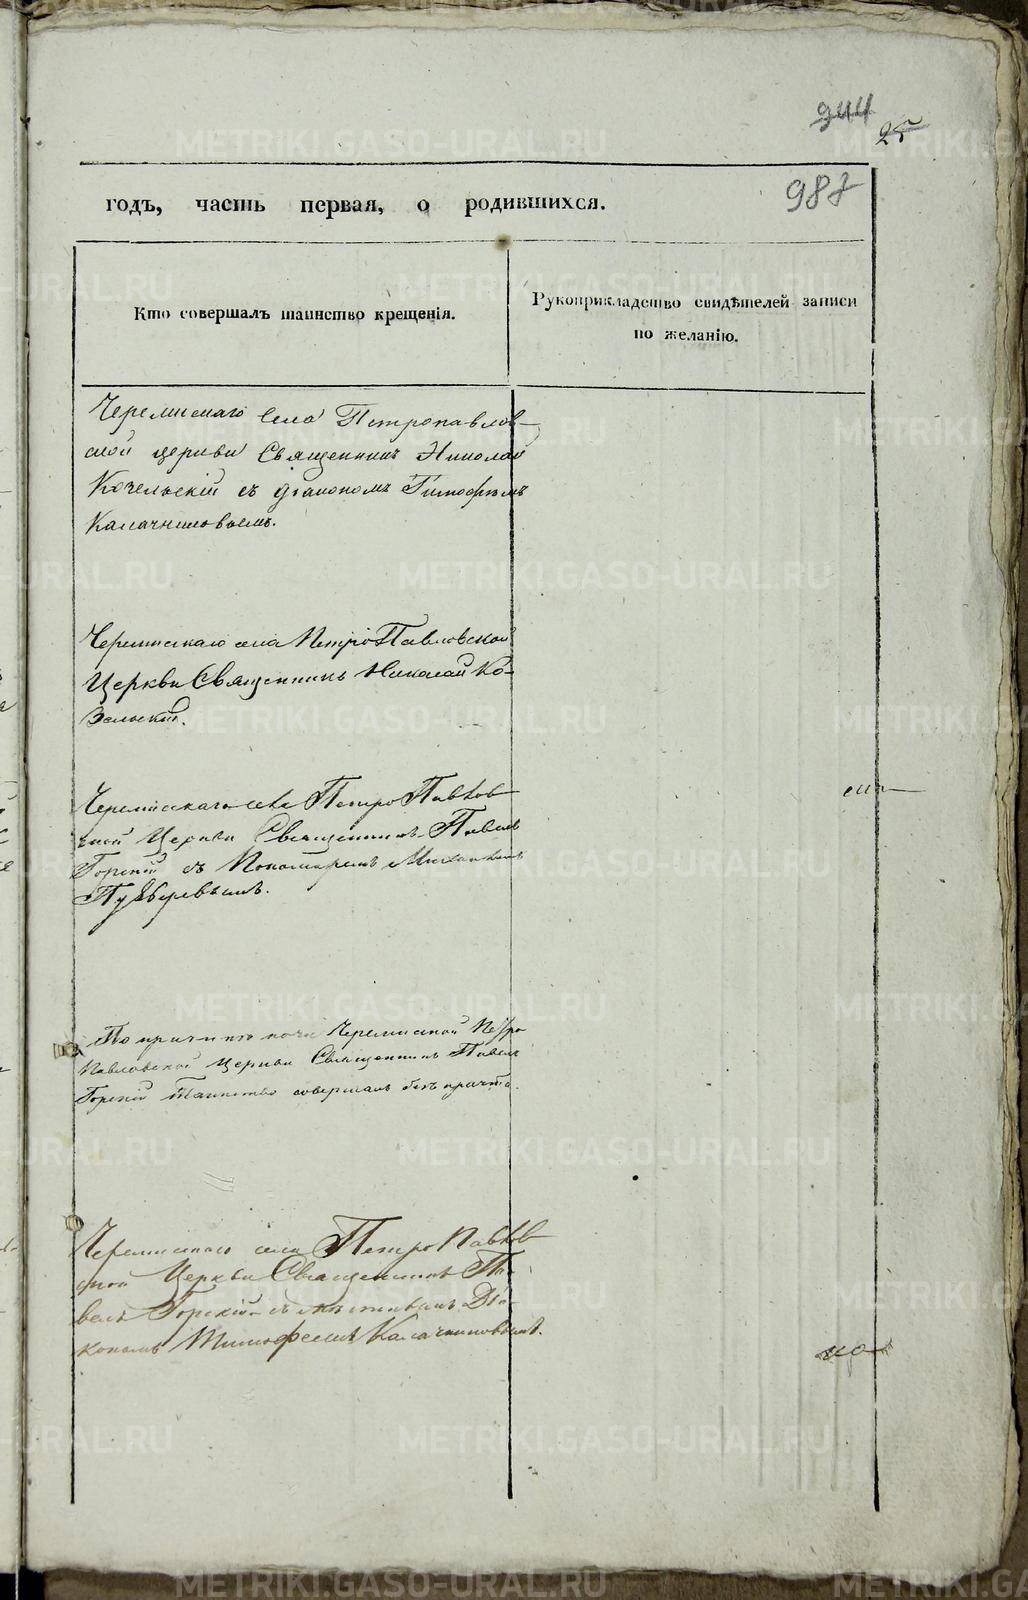 944
25
987
годъ, часть первая, о родившихся.
Кто совершалъ таинство крещенія.
Рукоприкладство свидѣтелей записи
по желанію.
Черемискаго села Петропавлов-
ской церкви Священникъ Николай
съ діакономъ Тимофѣемъ
Калачниковымъ.
Черемискаго села ПетроПавловской
Церкви Священникъ Николай Ко-
зельскій.
Черемискаго села ПетроПавлов-
ской Церкви Священникъ Павелъ
Горскій съ Пономаремъ Михаиломъ
По причинѣ ночи Черемиской Петро
Павловской Церкви Священникъ Павелъ
Горскій Таинство совершалъ безъ причта
Черемискаго села ПетроПавлов-
ской Церкви Священникъ Па-
велъ Горскій съ Діа-
кономъ Тимофеемъ Калачниковымъ.
METRIKI.GASO-URAL.RU